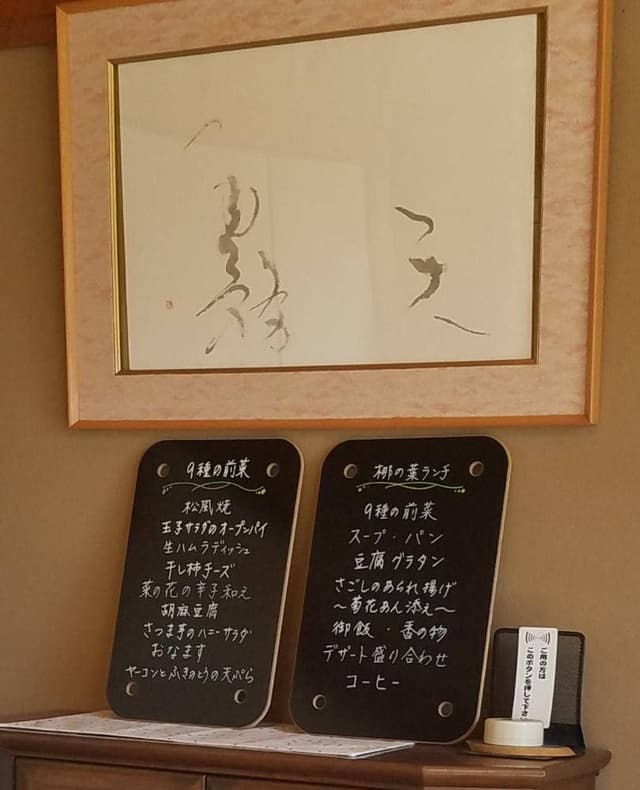 9種の前菜
松風焼
玉子サラダのオープンパイ
生ハムラディッシュ
干し柿チーズ
菜の花の辛子和え
胡麻豆腐
さつま芋のハニーサラダ
おなます
ヤーコンとふきのとうの天ぷら
梛の葉ランチ
9種の前菜
スープ・パン
豆腐グラタン
さごしのあられ揚げ
〜菊花あん添え〜
御飯・香の物
デザート盛り合わせ
コーヒー
ご用の方は
このボタンを押して下さい